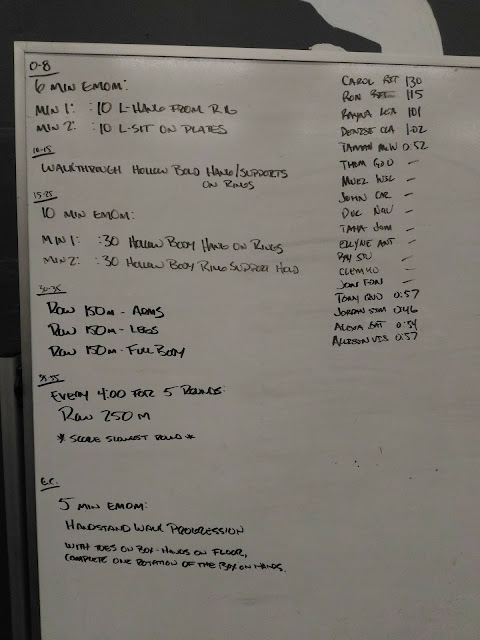 0-8
6 MIN EMOM:
MIN 1: :10 L-HANG FROM RIG
MIN 2: :10 L-SIT ON PLATES
10-15
WALKTHROUGH HOLLOW BOLD HANG/SUPPORTS
ON RINGS
15-25
10 MIN EMOM:
MIN 1: :30 HOLLOW BODY HANG ON RINGS
MIN 2: :30 HOLLOW BODY RING SUPPORT HOLD
30-35
ROW 150M - ARMS
ROW 150M - LEGS
ROW 150M - FULL BODY
35-55
EVERY 4:00 FOR 5 ROUNDS:
ROW 250 M
* SCORE SLOWEST ROUND *
E.C.
5 MIN EMOM:
HANDSTAND WALK PROGRESSION
WITH TOES ON BOX - HANDS ON FLOOR,
COMPLETE ONE ROTATION OF THE BOX ON HANDS.
CAROL 130
RON 115
RAYNA 101
DENISE 1:02
0:52
THOM GOO —
—
JOHN CAR —
DUC NAU —
TAHA —
ELLYNE ANT —
RAY —
—
JON FON —
TONY 0:57
JORDAN 0:46
ALEXA 0:54
ALLISON VIS 0:57